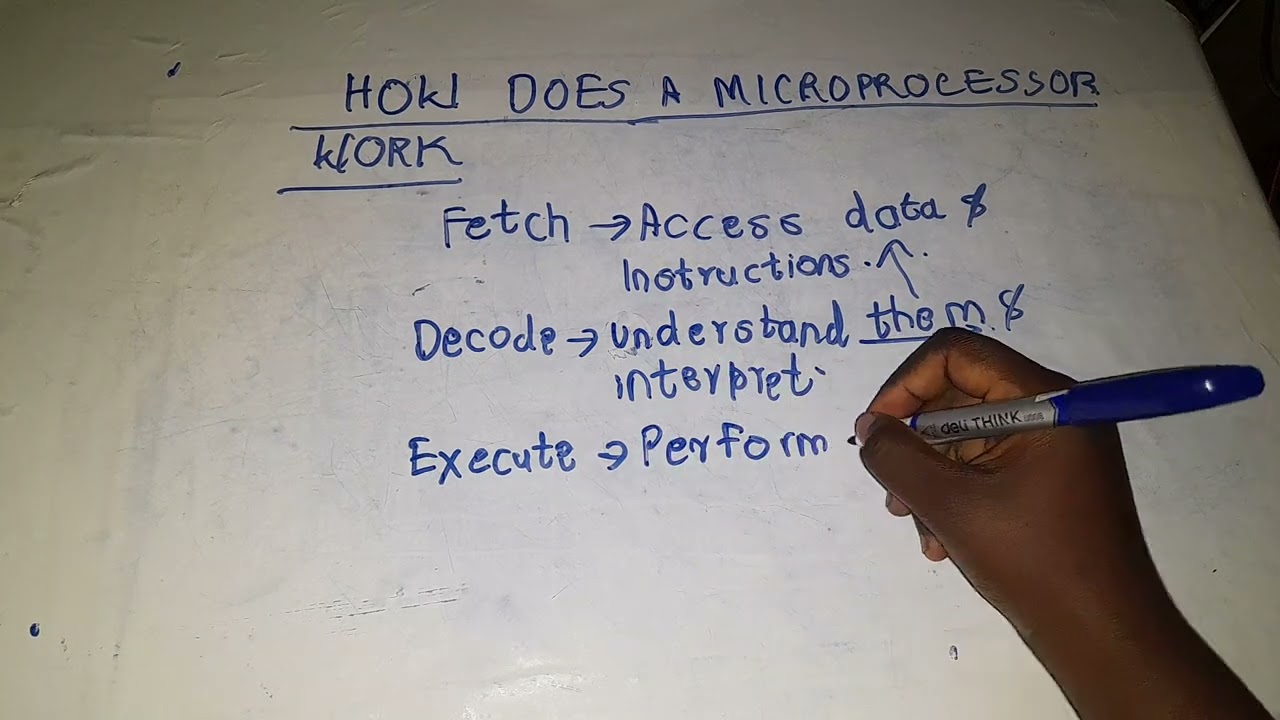 HOW DOES A MICROPROCESSOR
WORK
Fetch → Access data &
Instructions.
Decode → understand them &
interpret.
Execute → Perform
deli THINK